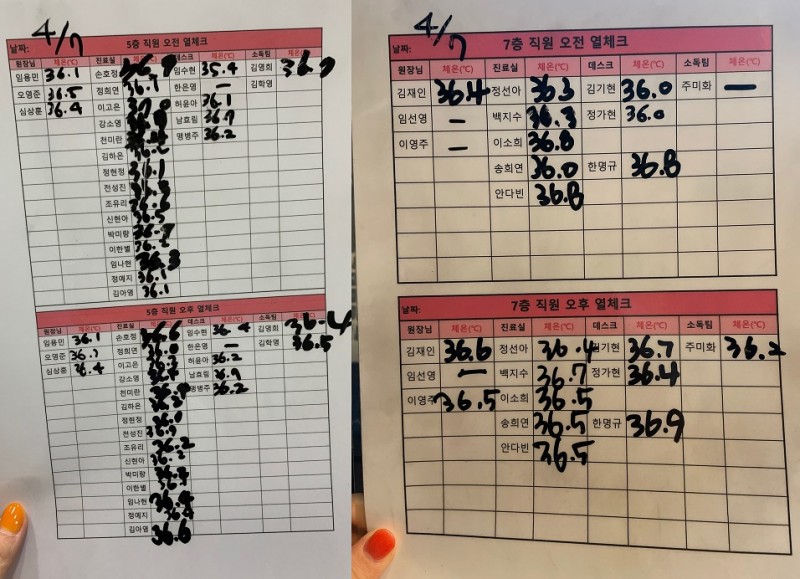 4/7
5층 직원 오전 열체크
날짜:
원장님 체온(℃) 진료실 체온(℃) 데스크 체온(℃) 소독팀 체온(℃)
임용민 36.1 손호정 임수현 35.4 김영희
오영준 36.5 정희연 36.1 한은영 — 김학영
심상훈 36.4 이고은 허윤아 36.1
강소영 남효림 36.7
전미란 명병주 36.2
김하은
정현정 36.1
전성진
조유리 36.6
신현아 36.5
박미랑 36.7
이한별
임나현
정예지 36.1
김아영 36.1
5층 직원 오후 열체크
날짜:
원장님 체온(℃) 진료실 체온(℃) 데스크 체온(℃) 소독팀 체온(℃)
임용민 36.1 손호정 임수현 36.4 김영희 36.4
오영준 정희연 한은영 — 김학영 36.5
심상훈 36.4 이고은 허윤아 36.2
강소영 남효림 36.9
전미란 명병주 36.2
김하은
정현정
전성진
조유리 36.2
신현아
박미랑
이한별
임나현
정예지
김아영 36.6
4/7
7층 직원 오전 열체크
날짜:
원장님 체온(℃) 진료실 체온(℃) 데스크 체온(℃) 소독팀 체온(℃)
김재인 36.4 정선아 36.3 김기현 36.0 주미화 —
임선영 — 백지수 36.3 정가현 36.0
이영주 — 이소희 36.8
송희연 36.0 한명규 36.8
안다빈 36.8
7층 직원 오후 열체크
날짜:
원장님 체온(℃) 진료실 체온(℃) 데스크 체온(℃) 소독팀 체온(℃)
김재인 36.6 정선아 36.4 김기현 36.7 주미화 36.2
임선영 — 백지수 36.7 정가현 36.4
이영주 36.5 이소희 36.5
송희연 36.5 한명규 36.9
안다빈 36.5